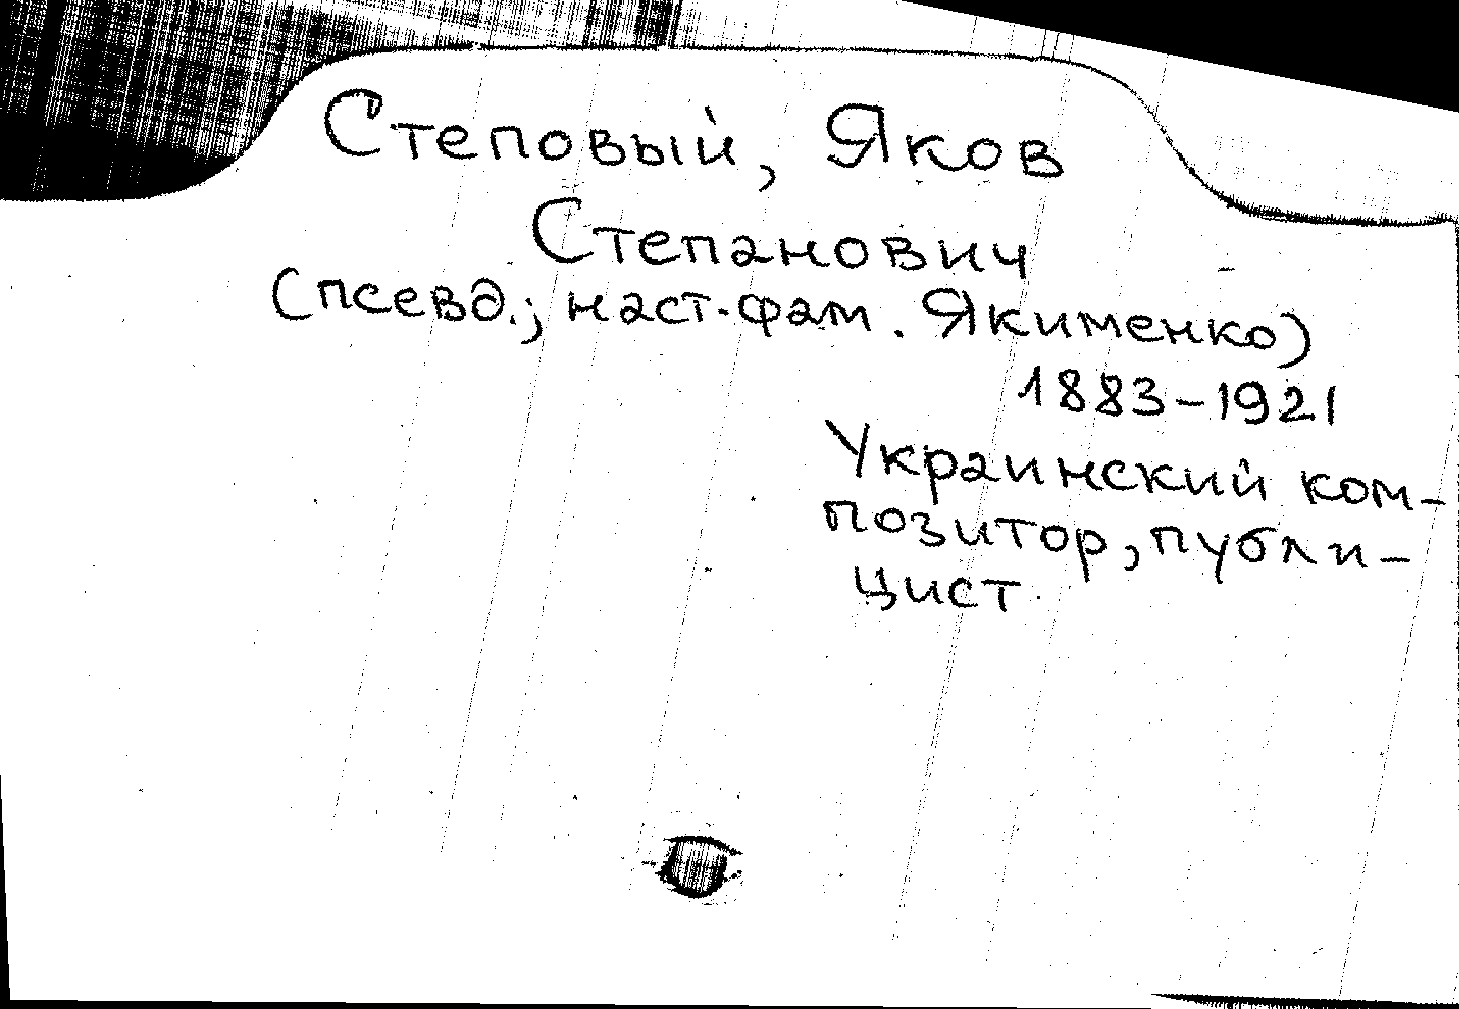 Степовый, Яков
Степанович
(псевд.; наст. фам. Якименко)
1883-1921
Украинский ком-
позитор, публи-
цист